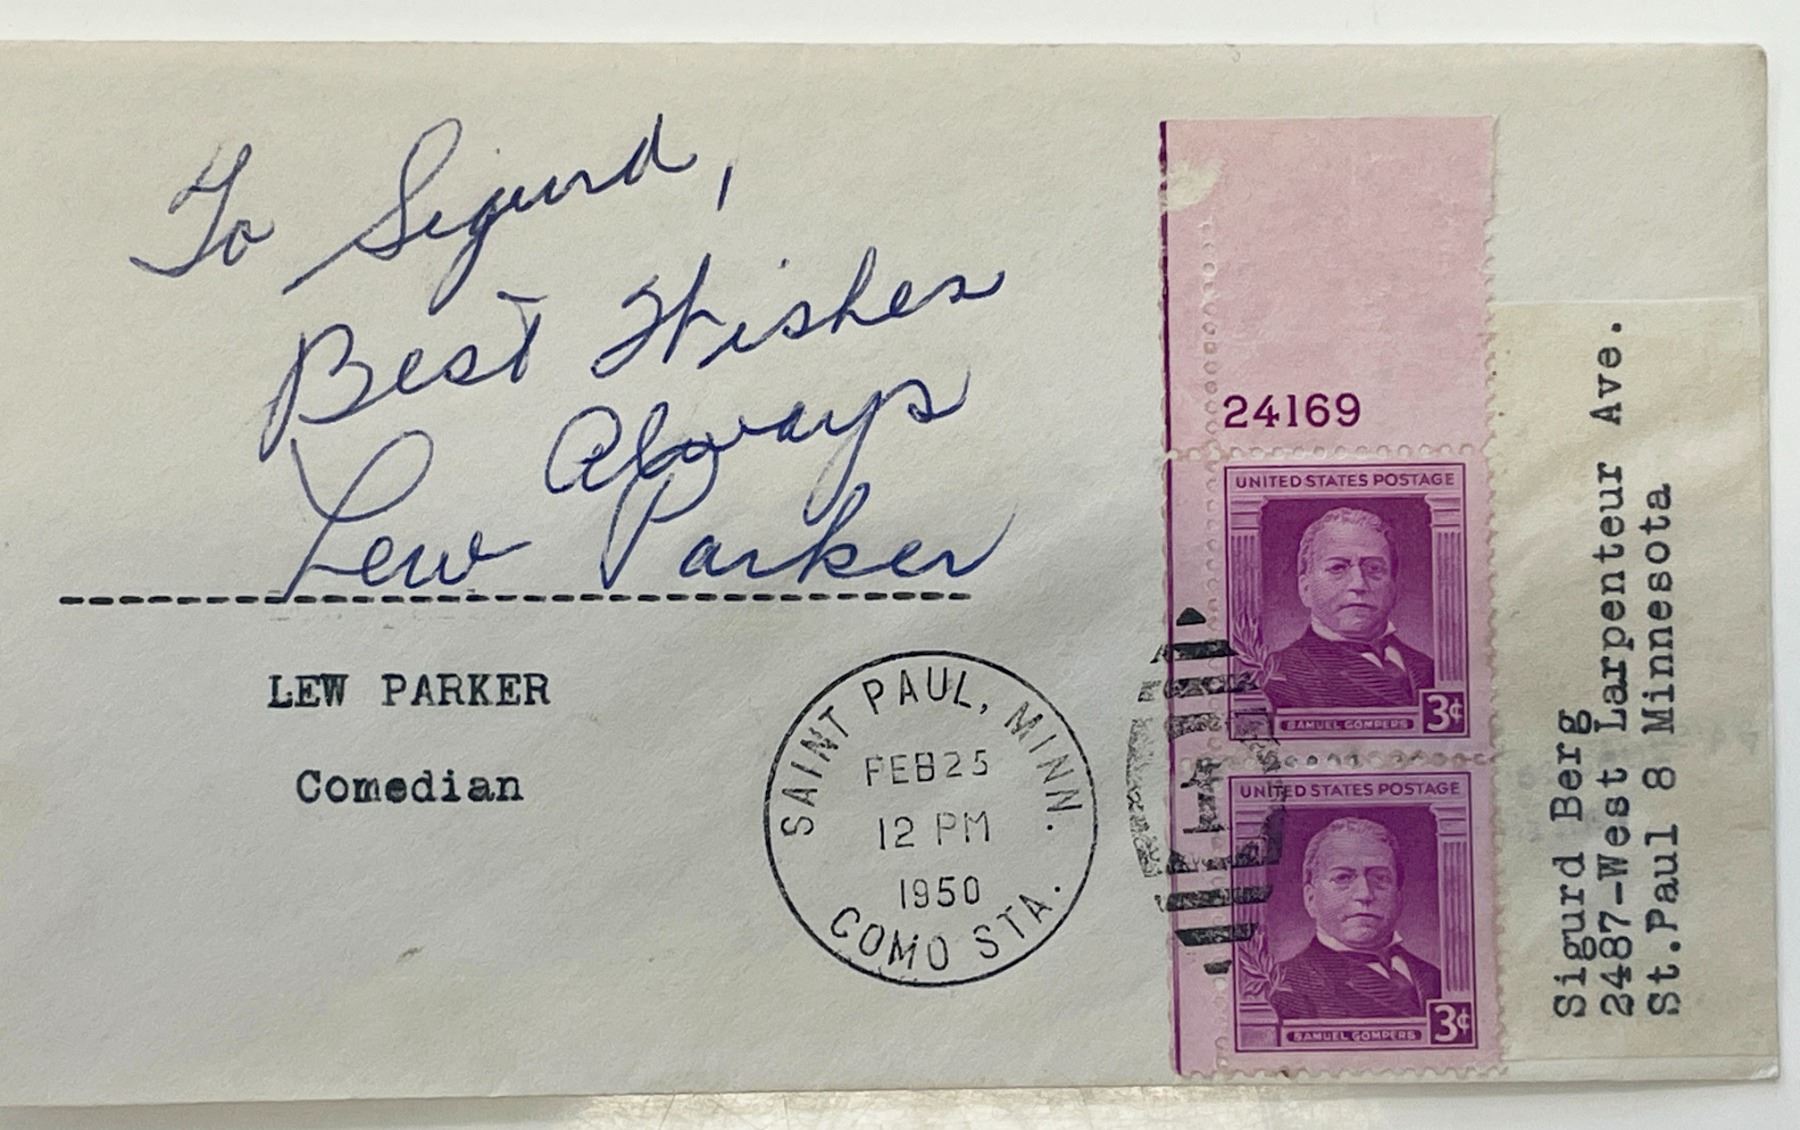 To Sigurd,
Best Wishes
Always
Lew Parker
LEW PARKER
Comedian
SAINT PAUL, MINN.
FEB 25
12 PM
1950
COMO STA.
24169
UNITED STATES POSTAGE
SAMUEL GOMPERS
3¢
UNITED STATES POSTAGE
SAMUEL GOMPERS
3¢
Sigurd Berg
2487-West Larpenteur Ave.
St.Paul 8 Minnesota